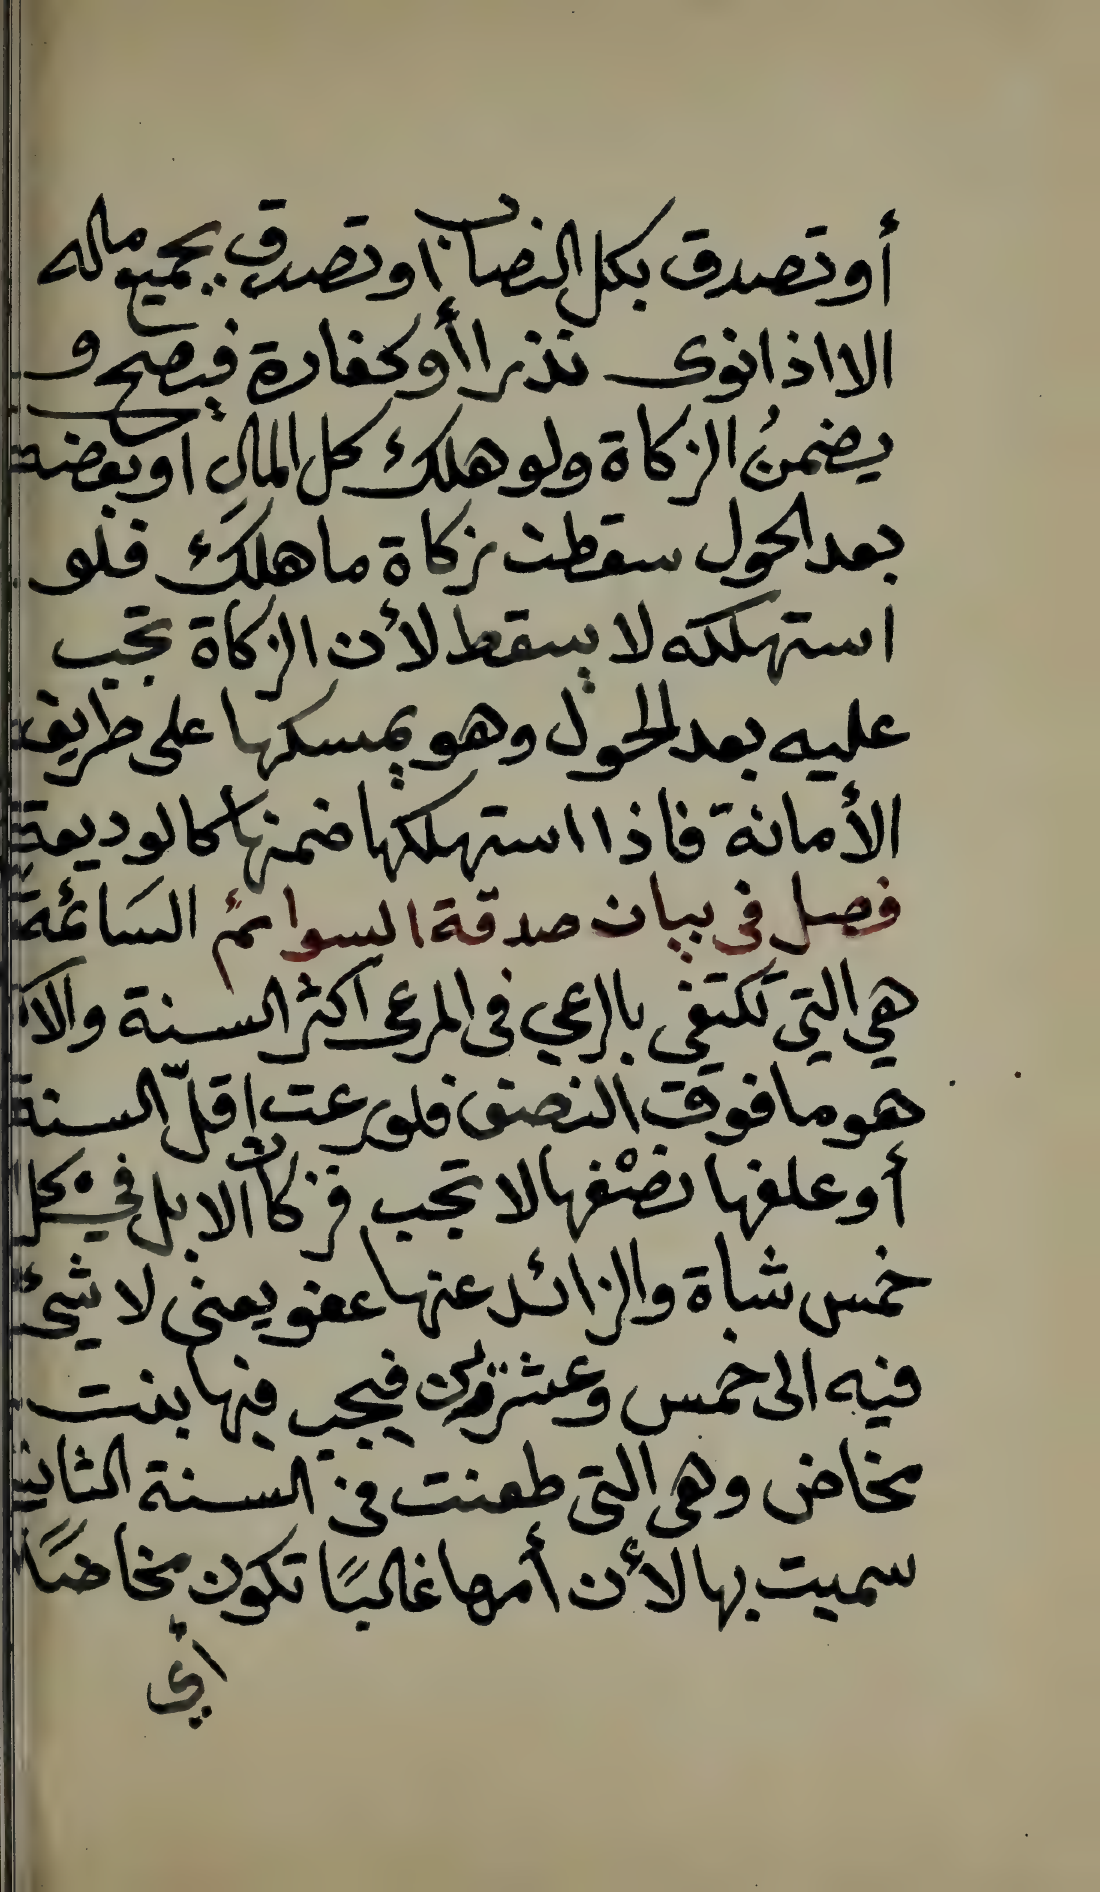 أو تصدق بكل النصاب او تصدق بجميع ماله
الا اذا نوى نذرا أو كفارة فيصح و
يضمنُ الزكاة ولو هلك كل المال او بعضه
بعد الحول سقطت زكاة ما هلك فلو
استهلكه لا يسقط لأن الزكاة تجب
عليه بعد الحول وهو يمسكها على طريق
الأمانة فاذا استهلكها ضمنها كالوديعة
فصل في بيان صدقة السوائم السَائمة
هي التي تكتفي بالرعي في المرعى اكثر السنة والا
هو ما فوق النصف فلو رعت اقلّ السنة
أو علفها نصْفها لا تجب فزكاة الابل في كل
خمس شاة والزائد عنها عفو يعنى لا شئ
فيه الى خمس وعشرين فيجب فيها بنت
مخاض وهي التي طعنت في السنة الثانية
سميت بها لأن أمها غالبًا تكون مخاضًا
اي